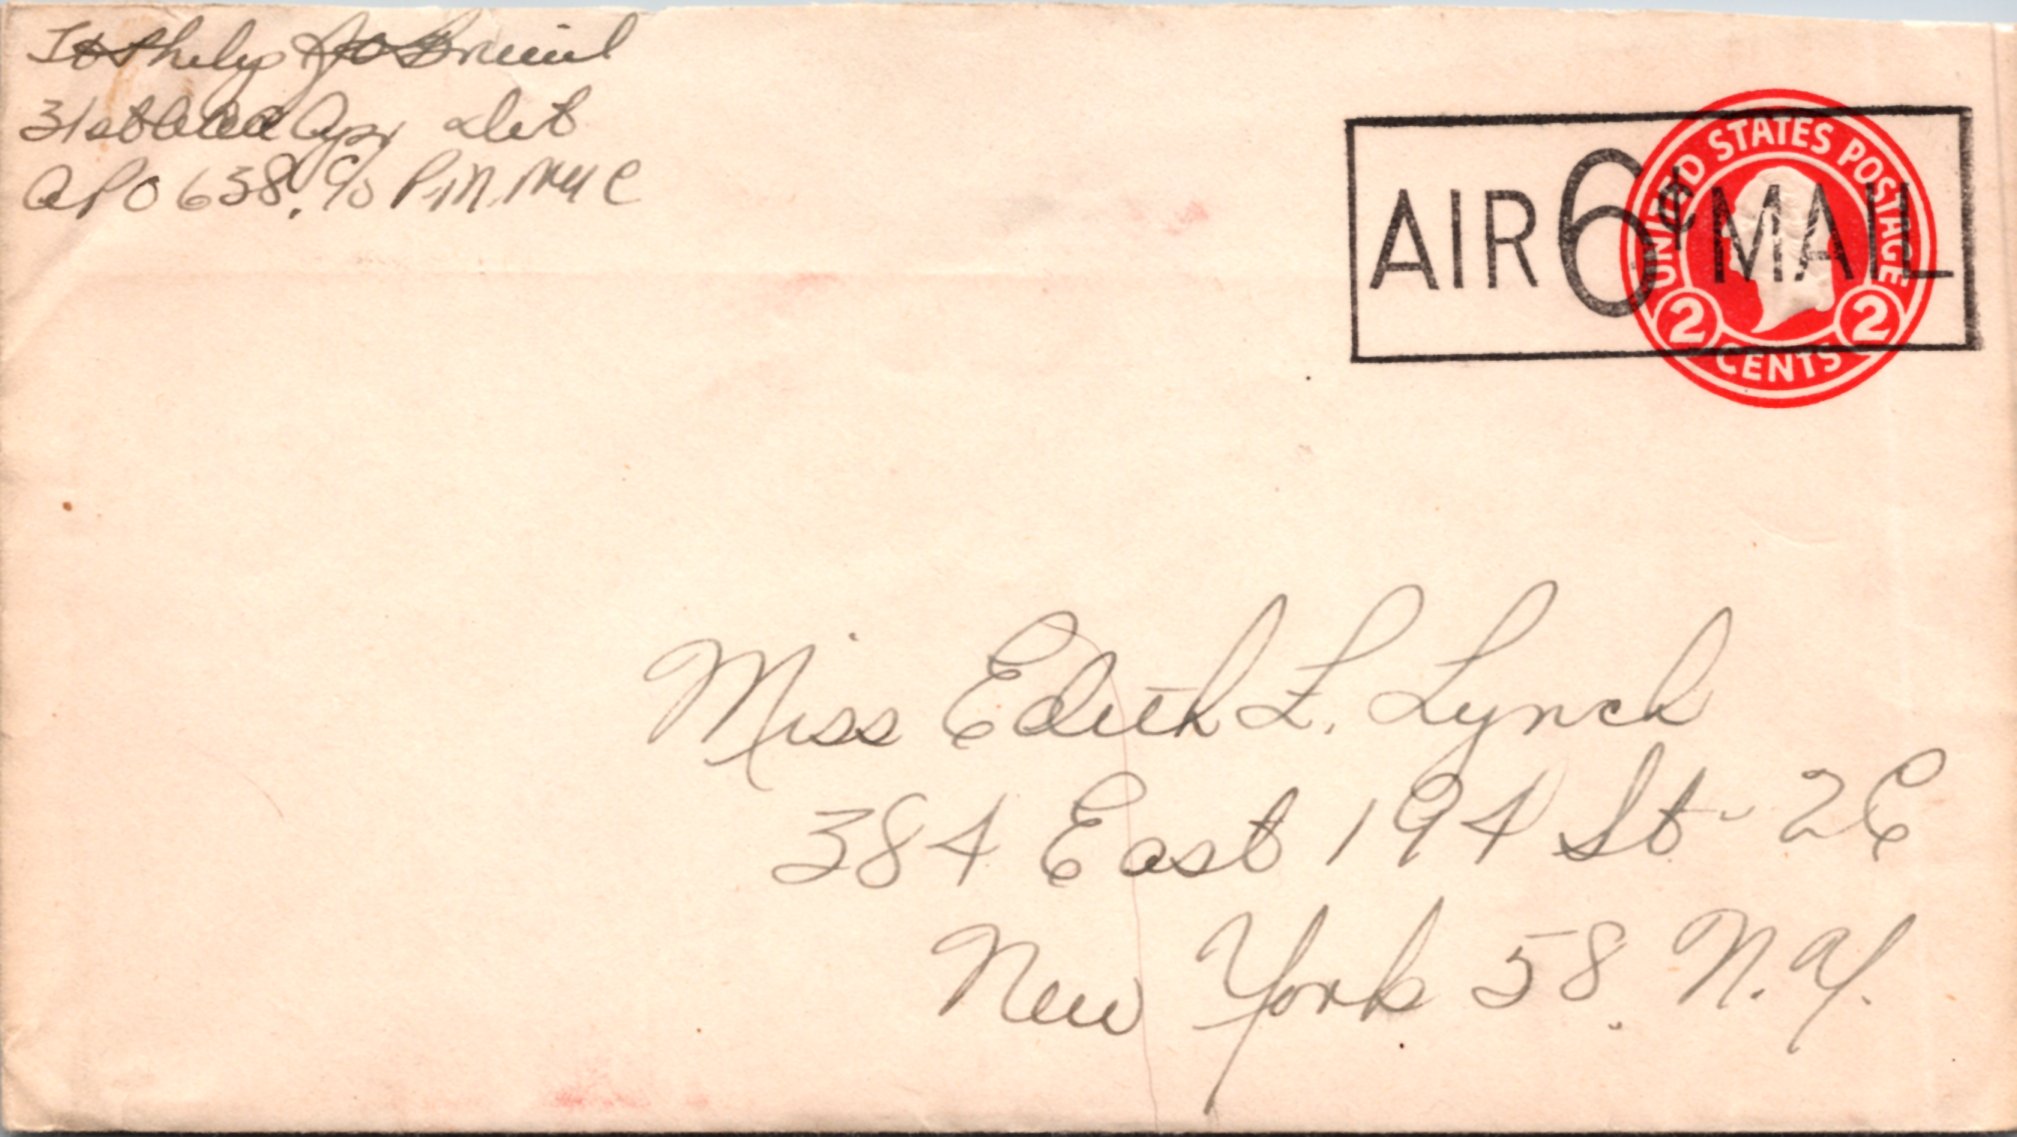 Lt Philip J. O'Brien
31st Det
APO 638, c/o P.M. NYC
AIR 6¢ MAIL
UNITED STATES POSTAGE
2 CENTS 2
Miss Edith L. Lynch
384 East 194 St - 2C
New York 58. N.Y.